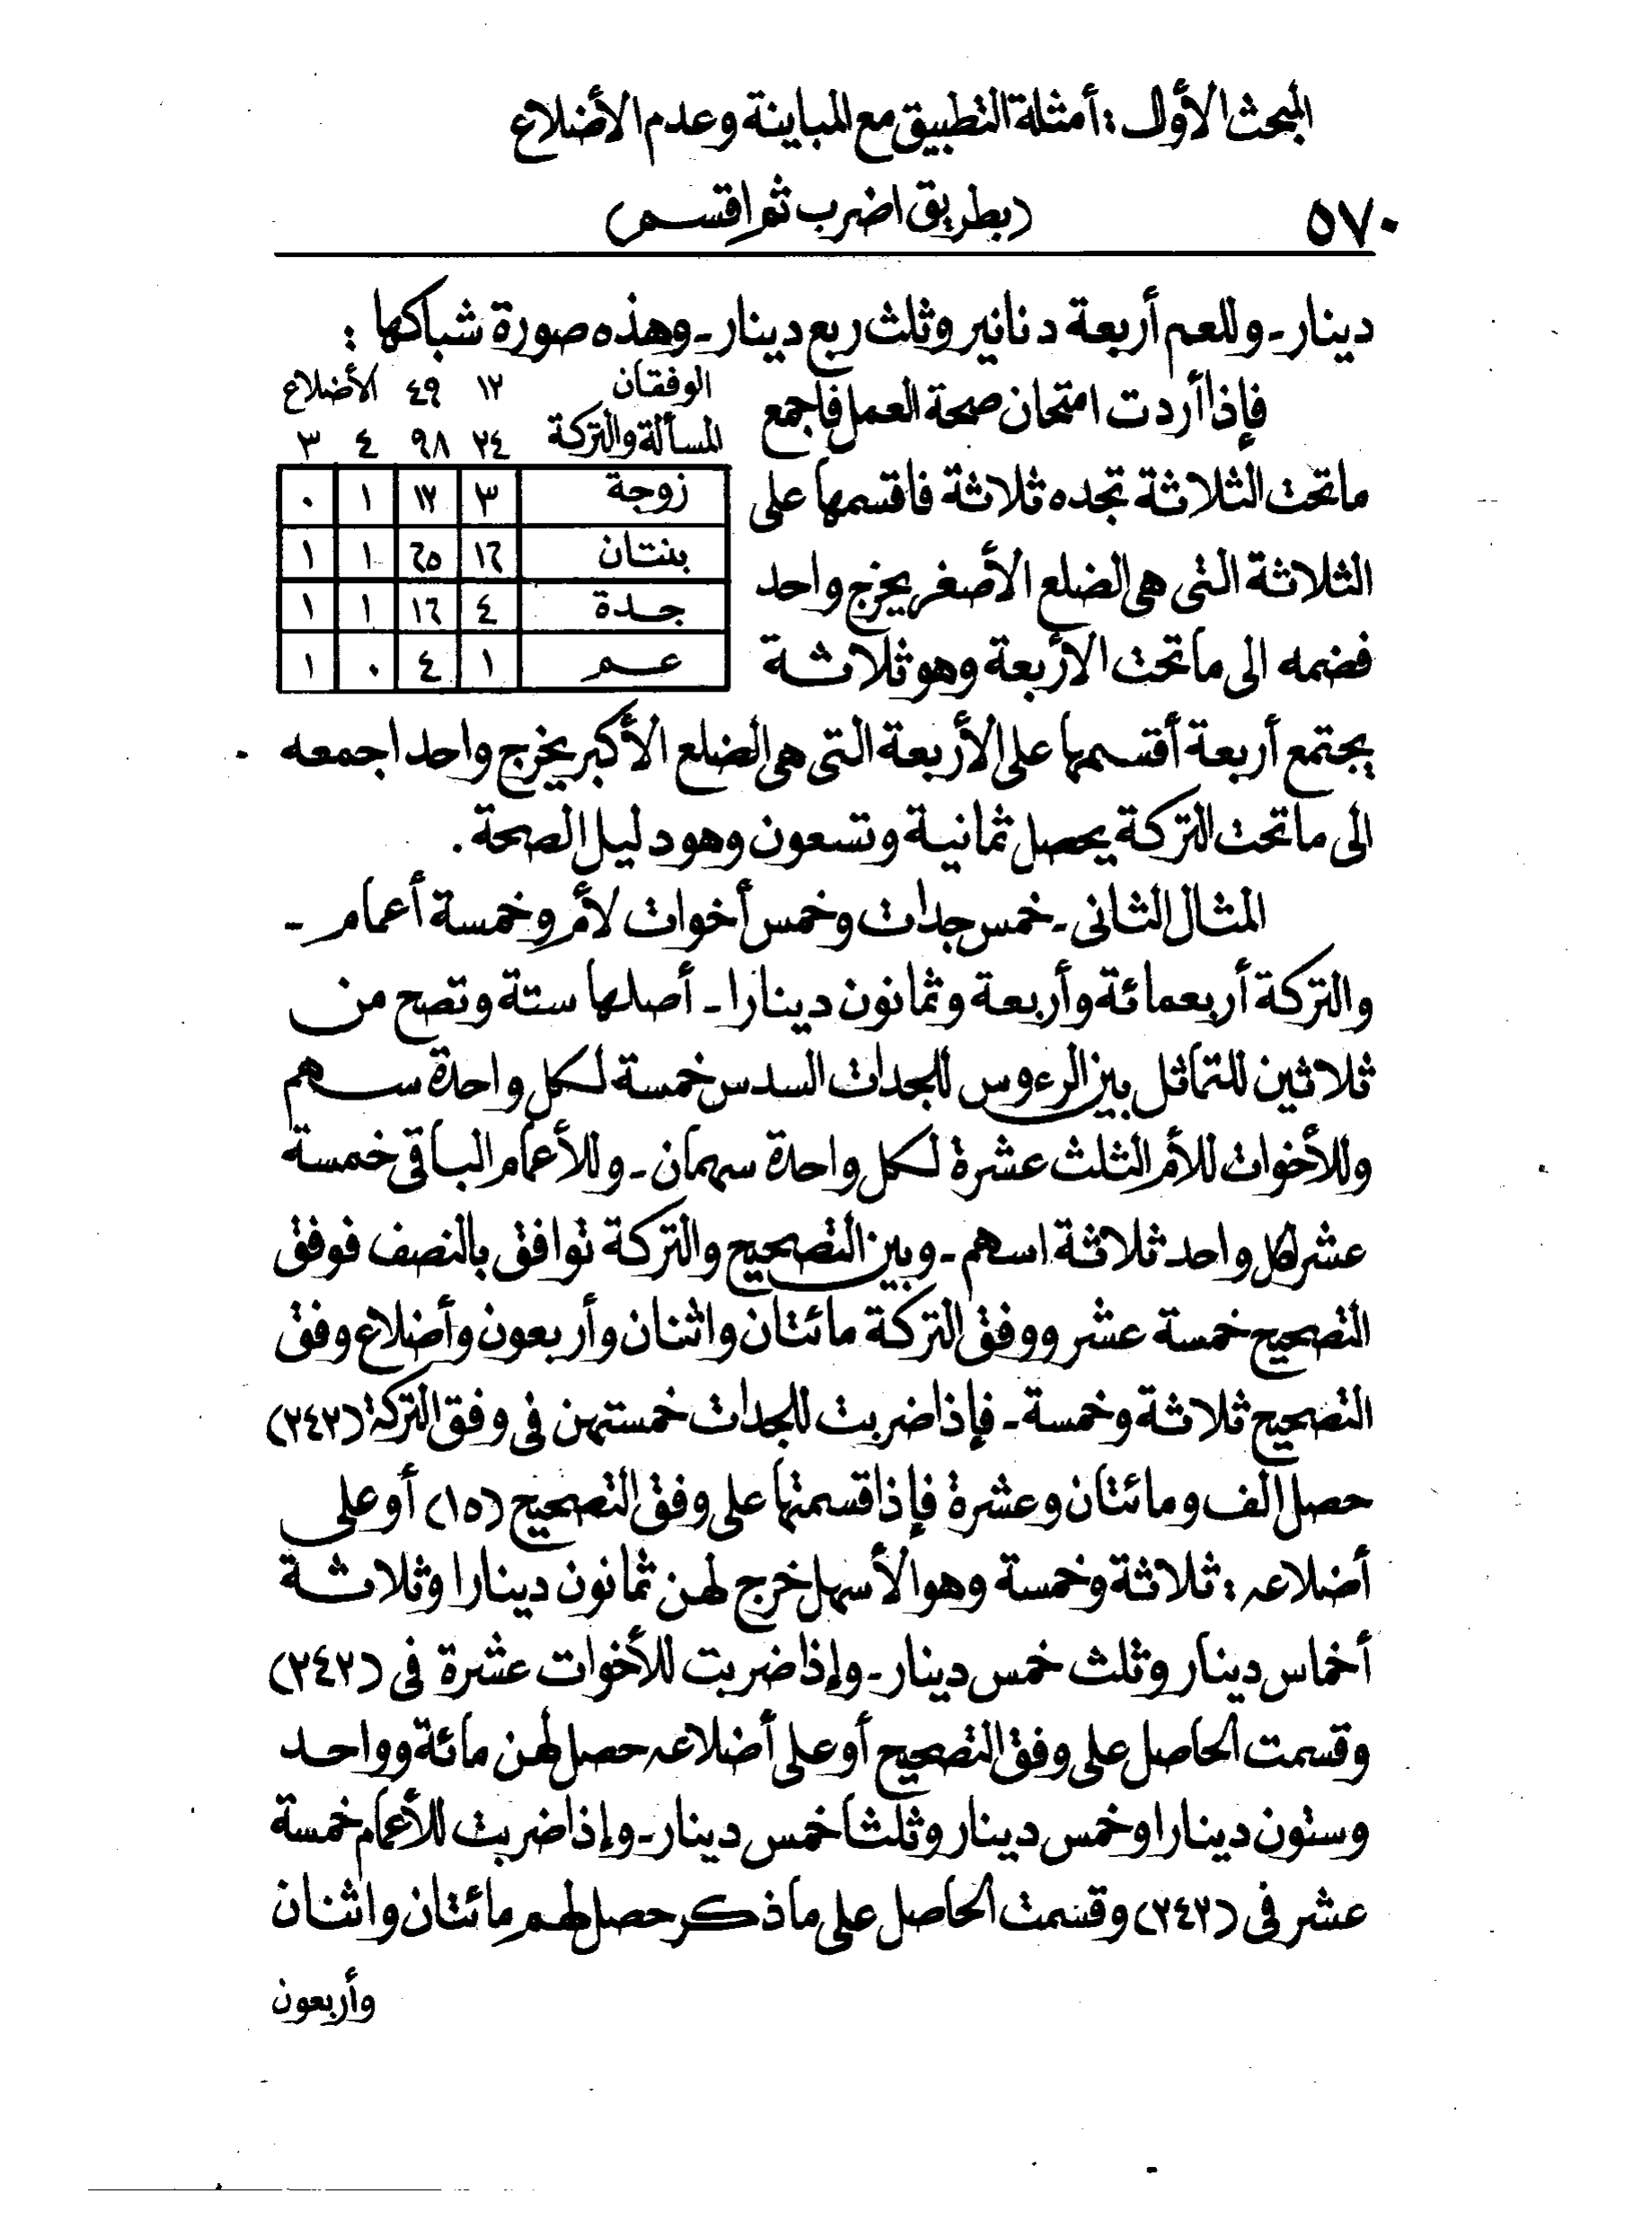 المبحث الأول : أمثلة التطبيق مع المباينة وعدم الأضلاع
٥٧٠ (بطريق اضرب ثم اقسم)
دينار ـ وللعم أربعة دنانير وثلث ربع دينار ـ وهذه صورة شباكها :
فإذا أردت امتحان صحة العمل فاجمع
ما تحت الثلاثة تجده ثلاثة فاقسمها على
الثلاثة التى هى الضلع الأصغر يخرج واحد
فضمه الى ما تحت الأربعة وهو ثلاثة
الوفقان ١٢ ٤٩ الأضلاع
المسألة والتركة ٢٤ ٩٨ ٤ ٣
زوجة ٣ ١٢ ١ ٠
بنتان ١٦ ٦٥ ١ ١
جدة ٤ ١٦ ١ ١
عم ١ ٤ ٠ ١
يجتمع أربعة أقسمها على الأربعة التى هى الضلع الأكبر يخرج واحد اجمعه
الى ما تحت التركة يحصل ثمانية وتسعون وهو دليل الصحة .
المثال الثانى ـ خمس جدات وخمس أخوات لأم وخمسة أعمام ـ
والتركة أربعمائة وأربعة وثمانون دينارا ـ أصلها ستة وتصح من
ثلاثين للتماثل بين الرءوس للجدات السدس خمسة لكل واحدة سهم
وللأخوات للأم الثلث عشرة لكل واحدة سهمان ـ وللأعمام الباقى خمسة
عشر لكل واحد ثلاثة اسهم ـ وبين التصحيح والتركة توافق بالنصف فوفق
التصحيح خمسة عشر ووفق التركة مائتان واثنان وأربعون وأضلاع وفق
التصحيح ثلاثة وخمسة ـ فإذا ضربت للجدات خمستهن فى وفق التركة (٢٤٢)
حصل الف ومائتان وعشرة فإذا قسمتها على وفق التصحيح (١٥) أو على
أضلاعه : ثلاثة وخمسة وهو الأسهل خرج لهن ثمانون دينارا وثلاثة
أخماس دينار وثلث خمس دينار ـ وإذا ضربت للأخوات عشرة فى (٢٤٢)
وقسمت الحاصل على وفق التصحيح أو على أضلاعه حصل لهن مائة وواحد
وستون دينارا وخمس دينار وثلثا خمس دينار ـ وإذا ضربت للأعمام خمسة
عشر فى (٢٤٢) وقسمت الحاصل على ما ذكر حصل لهم مائتان واثنان
وأربعون